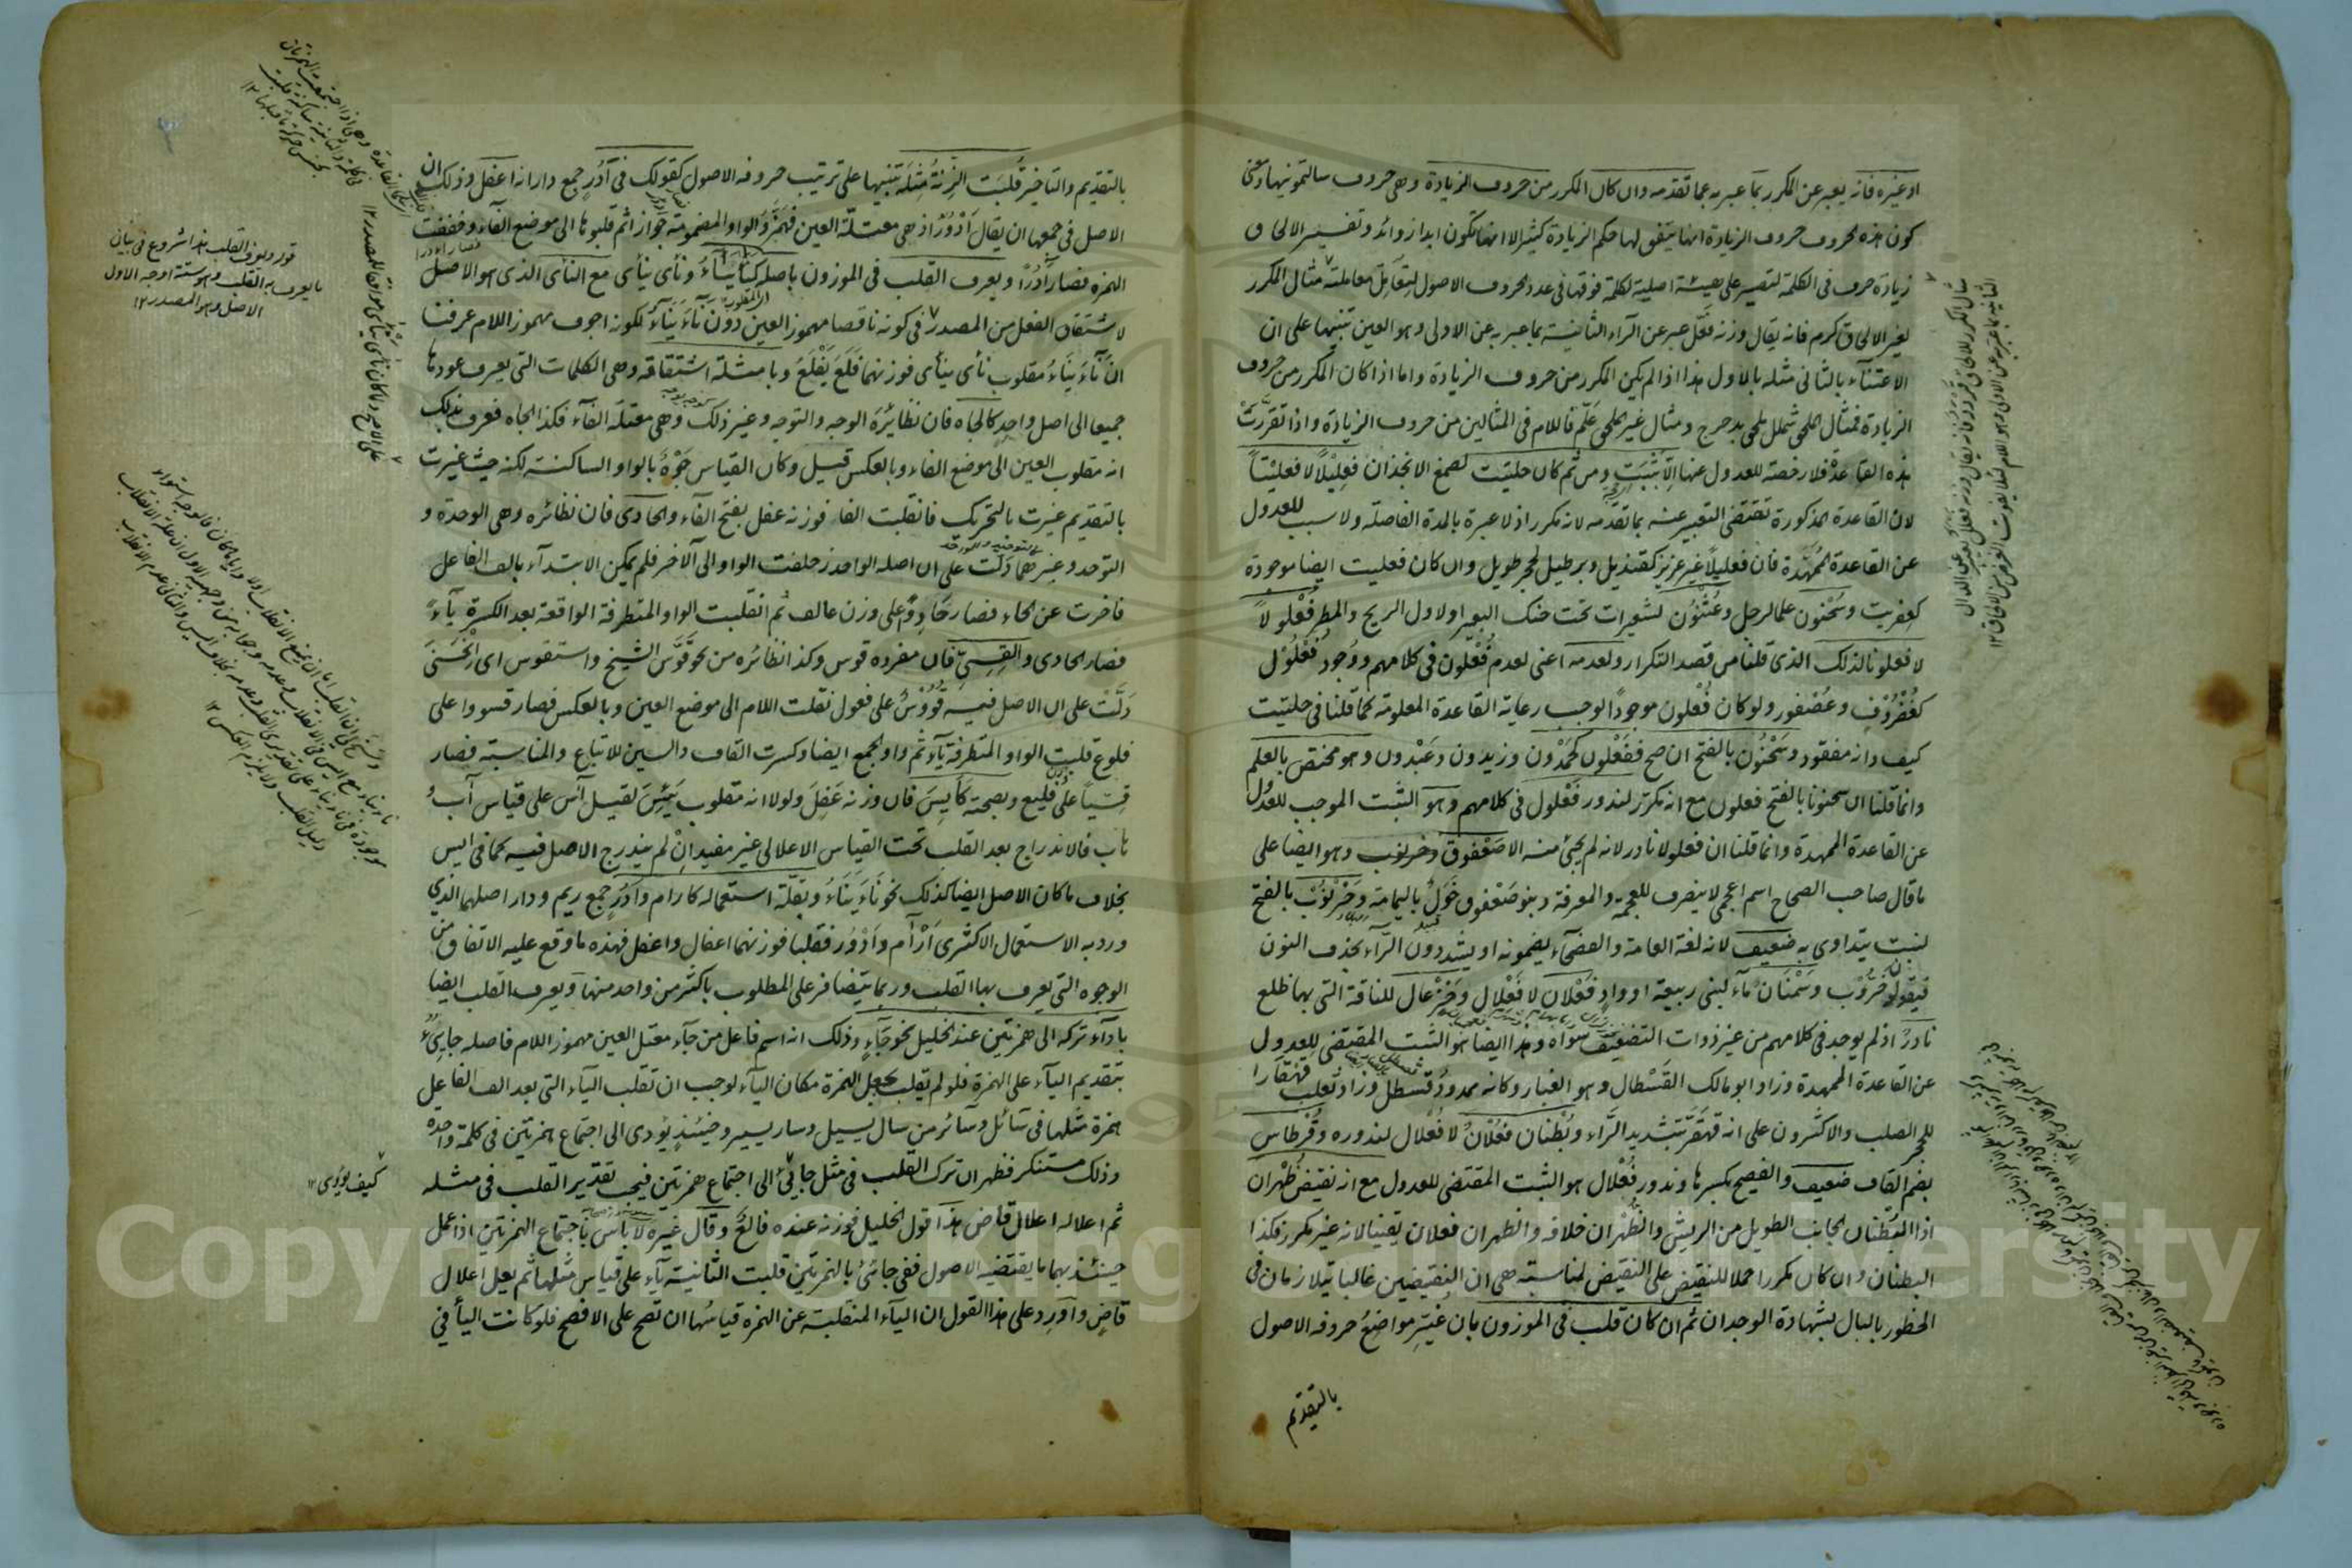 او غيره فانه يعبر عن المكرر بما عبر به عما تقدمه وان كان المكرر من حروف الزيادة وهي حروف سالتمونيها ومعنى
كون هذه الحروف حروف الزيادة انها يتفق لها حكم الزيادة كثيرا لا انها تكون ابدا زوائد وتفسير الالحاق
زيادة حرف في الكلمة لتصير على هيئة اصلية لكلمة فوقها في عدد الحروف الاصول لتعامل معاملته مثال المكرر
لغير الالحاق كرم فانه يقال وزنه فعّل عبر عن الرآء الثانية بما عبر به عن الاولى وهو العين تنبيها على ان
الاعتنآء بالثاني مثله بالاول هذا اذا لم يكن المكرر من حروف الزيادة واما اذا كان المكرر من حروف
الزيادة فمثال الملحق شملل ملحق بدحرج ومثال غير الملحق علّم فاللام في المثالين من حروف الزيادة واذا تقررت
هذه القاعدة فلا رخصة للعدول عنها الا بثبت ومن ثم كان حلتيت لصمغ الانجذان فعليلا لا فعليتا
لان القاعدة المذكورة تقتضي التعبير عنه بما تقدمه لانه مكرر اذ لا عبرة بالمدة الفاصلة ولا سبب للعدول
عن القاعدة الممهدة فان فعليلا غير عزيز كقنديل وبرطيل لحجر طويل وان كان فعليت ايضا موجودة
كعفريت وسحنون علما لرجل وعثنون لشعيرات تحت حنك البعير او لاول الريح والمطر فعلولا
لا فعلونا لذلك الذي قلنا من قصد التكرار ولعدمه اعني لعدم فعلون في كلامهم ووجود فعلول
كغضروف وعصفور ولو كان فعلون موجودا لوجب رعاية القاعدة المعلومة كما قلنا في حلتيت
كيف وانه مفقود وسحنون بالفتح ان صح ففعلون كحمدون وزيدون وعبدون وهو مختص بالعلم
وانما قلنا ان سحنونا بالفتح فعلون مع انه مكرر لندور فعلول في كلامهم وهو الثبت الموجب للعدول
عن القاعدة الممهدة وانما قلنا ان فعلولا نادر لانه لم يجئ منه الا صعفوق وخرنوب وهو ايضا على
ما قال صاحب الصحاح اسم اعجمي لا ينصرف للعجمة والمعرفة وبنو صعفوق خول باليمامة وخرنوب بالفتح
لنبت يتداوى به ضعيف لانه لغة العامة والفصحآء يضمونه او يشددون الرآء بحذف النون
فيقولون خروب وسمنان مآء لبني ربيعة او واد فعلان لا فعلال وخزعال للناقة التي بها ظلع
نادر اذ لم يوجد في كلامهم من غير ذوات التضعيف سواه وهذا ايضا هو الثبت المقتضي للعدول
عن القاعدة الممهدة وزاد ابو مالك القسطال وهو الغبار وكانه ممدود قسطل وزاد ثعلب قهقارا
للحجر الصلب والاكثرون على انه قهقر بتشديد الرآء وبطنان فعلان لا فعلال لندوره وقرطاس
بضم القاف ضعيف والفصيح بكسرها وندور فعلال هو الثبت المقتضي للعدول مع انه نقيض ظهران
اذ البطنان لجانب الطويل من الريش والظهران خلافه والظهران فعلان يقينا لانه غير مكرر فكذا
البطنان وان كان مكررا حملا للنقيض على النقيض لمناسبة هي ان النقيضين غالبا يتلازمان في
الخطور بالبال بشهادة الوجدان ثم ان كان قلب في الموزون بان غير مواضع حروفه الاصول
بالتقديم
بالتقديم والتاخير قلبت الزنة مثله تنبيها على ترتيب حروفه الاصول كقولك في آدر جمع دار انه اعفل وذلك ان
الاصل في جمعها ان يقال ادور اذ هي معتلة العين فهمزوا الواو المضمومة جوازا ثم قلبوها الى موضع الفاء وخففت
الهمزة فصار آدرا ويعرف القلب في الموزون باصله كناء يناء ونأى ينأى مع النأى الذي هو الاصل
لاشتقاق الفعل من المصدر في كونه ناقصا مهموز العين دون ناء يناء لكونه اجوف مهموز اللام عرفنا
ان ناء يناء مقلوب نأى ينأى فوزنهما فلع يفلع وبامثلة اشتقاقه وهي الكلمات التي يعرف عودها
جميعا الى اصل واحد كالجاه فان نظائره الوجه والتوجه وغير ذلك وهي معتلة الفآء فكذا الجاه فعرف بذلك
انه مقلوب العين الى موضع الفاء وبالعكس قيل وكان القياس جوه بالواو الساكنة لكنه حيث غيرت
بالتقديم غيرت بالتحريك فانقلبت الفا فوزنه عفل بفتح الفآء والحادى فان نظائره وهي الوحدة و
التوحد وغيرهما دلت على ان اصله الواحد زحلفت الواو الى الآخر فلم يمكن الابتدآء بالف الفاعل
فاخرت عن الحاء فصار حادو على وزن عالف ثم انقلبت الواو المتطرفة الواقعة بعد الكسرة يآء
فصار الحادى والقسي فان مفرده قوس وكذا نظائره من نحو قوس الشيخ واستقوس اى انحنى
دلت على ان الاصل فيه قووس على فعول نقلت اللام الى موضع العين وبالعكس فصار قسووا على
فلوع قلبت الواو المتطرفة يآء ثم واو الجمع ايضا وكسرت القاف والسين للاتباع والمناسبة فصار
قسيا على فليع وبصحته كأيس فان وزنه عفل ولولا انه مقلوب يئس لقيل آس على قياس آب و
هاب فالاندراج بعد القلب تحت القياس الاعلالي غير مفيد ان لم يندرج الاصل فيه كما في ايس
بخلاف ما كان الاصل ايضا كذلك نحو ناء يناء وبقلة استعماله كارام وآدر جمع ريم ودار اصلهما الذي
ورد به الاستعمال الاكثري ارآم وادور فقلبا فوزنهما اعفال واعفل فهذه ما وقع عليه الاتفاق من
الوجوه التي يعرف بها القلب وربما يتضافر على المطلوب باكثر من واحد منها ويعرف القلب ايضا
بادآء تركه الى همزتين عند الخليل نحو جآء وذلك انه اسم فاعل من جآء معتل العين مهموز اللام فاصله جايئ
بتقديم اليآء على الهمزة فلو لم تقلب بجعل الهمزة مكان اليآء لوجب ان تقلب اليآء التي بعد الف الفاعل
همزة مثلها في سآئل وسآئر من سال يسيل وسار يسير وحينئذ يؤدى الى اجتماع همزتين في كلمة واحدة
وذلك مستنكر فظهر ان ترك القلب في مثل جايئ الى اجتماع همزتين فيجب تقدير القلب في مثله
ثم اعلاله اعلال قاض هذا قول الخليل فوزنه عنده فالع وقال غيره لا باس باجتماع الهمزتين اذ اعمل
حينئذ بهما ما يقتضيه الاصول ففي جائئ بالهمزتين قلبت الثانية يآء على قياس مثلها ثم يعل اعلال
قاض واورد على هذا القول ان اليآء المنقلبة عن الهمزة قياسها ان تصح على الافصح فلو كانت اليآ في
قوله ويعرف القلب هذا شروع في بيان
ما يعرف به القلب وهو ستة اوجه الاول
الاصل وهو المصدر ١٢
كيف يؤدى ١٢